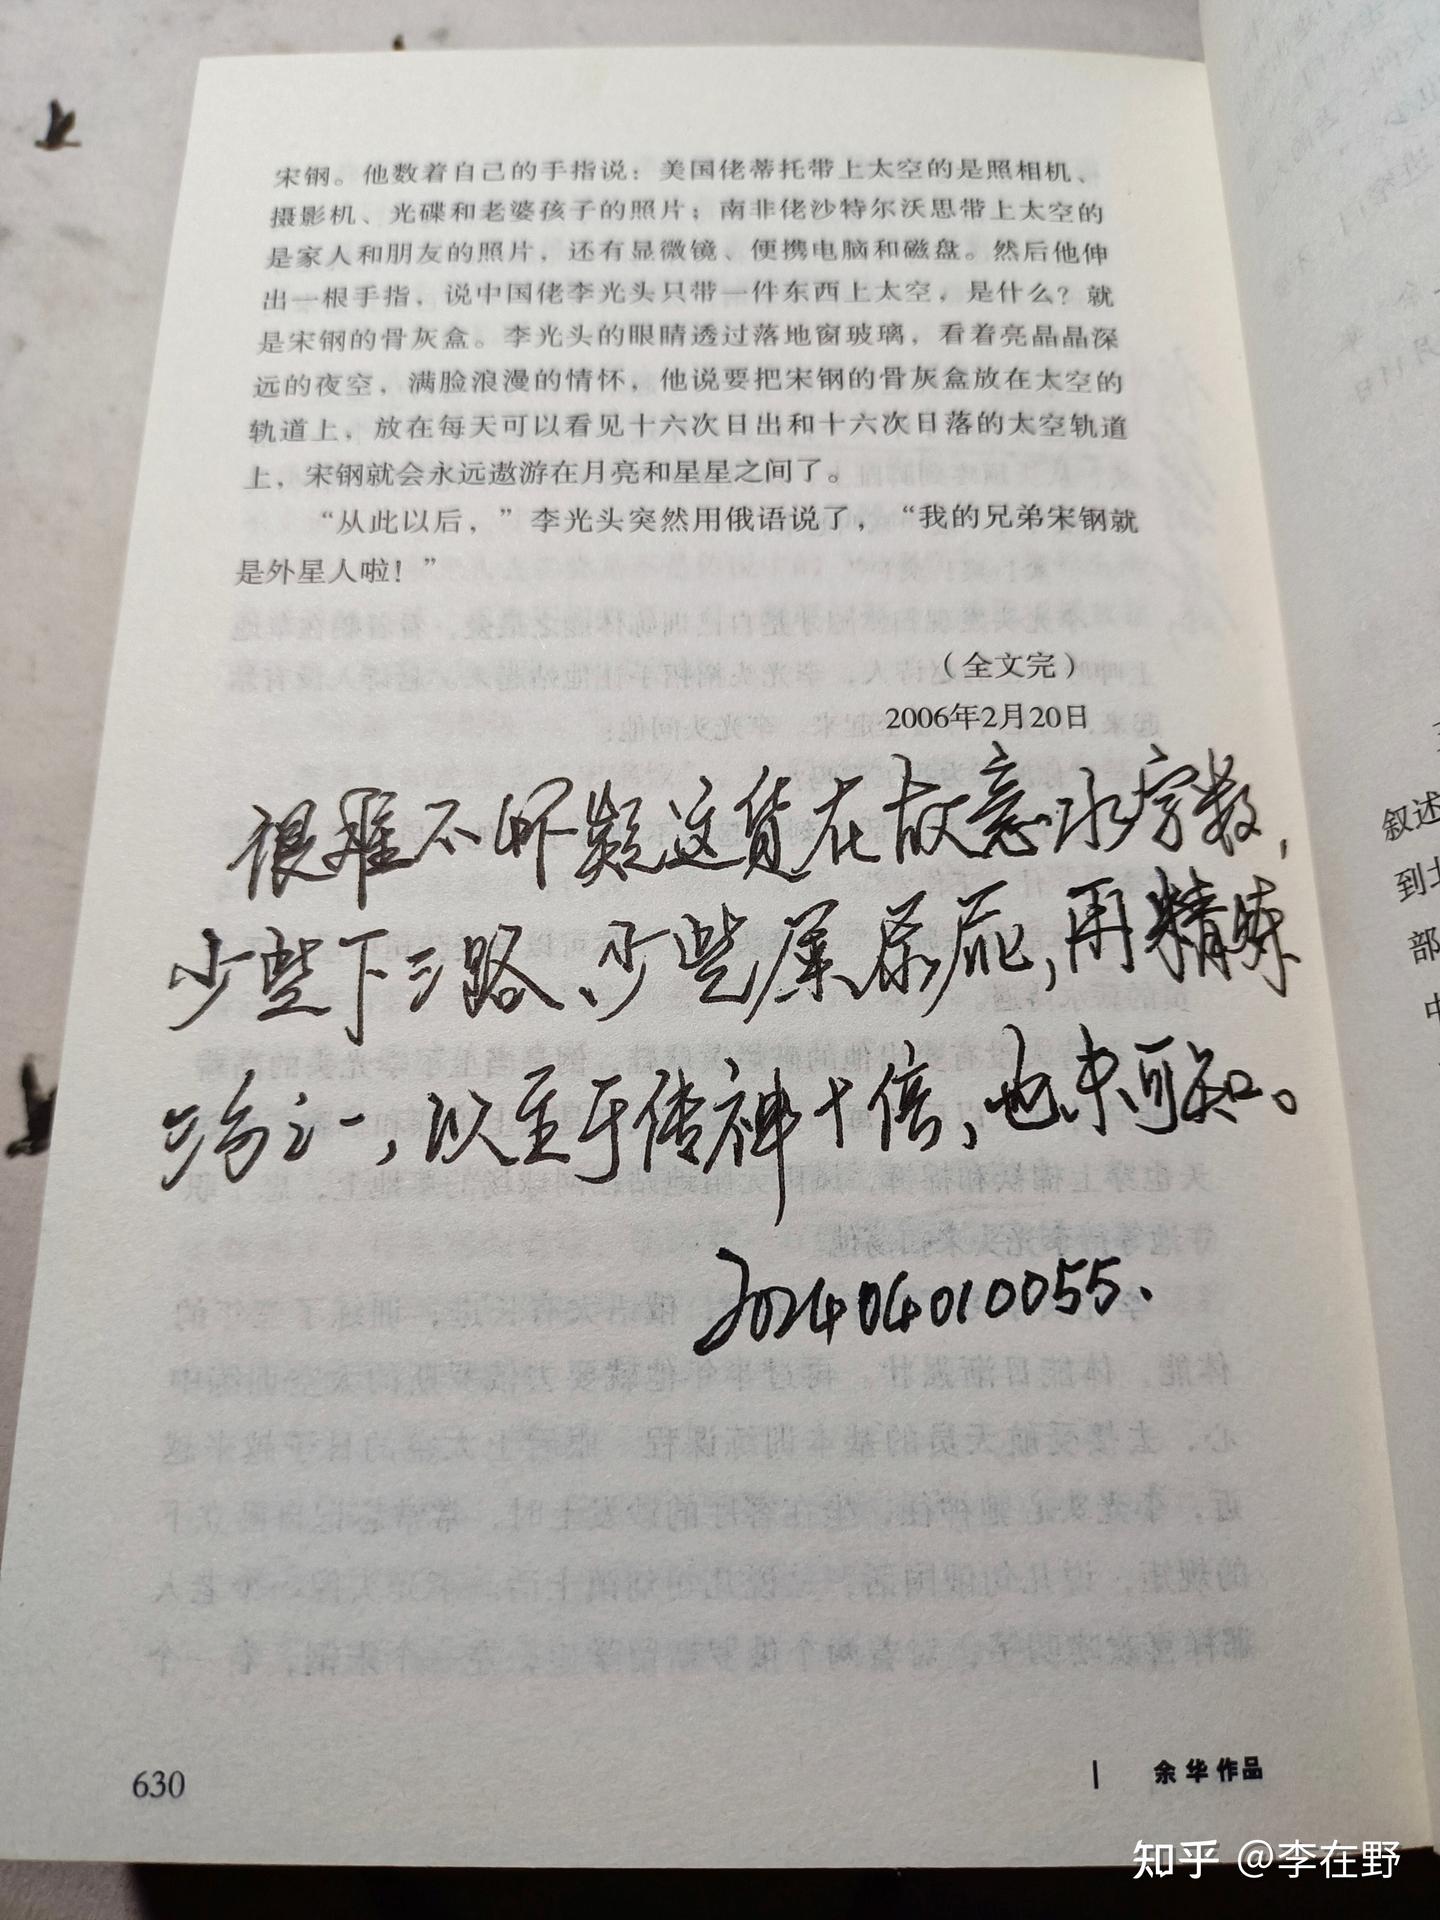 宋钢。他数着自己的手指说：美国佬蒂托带上太空的是照相机、
摄影机、光碟和老婆孩子的照片；南非佬沙特尔沃思带上太空的
是家人和朋友的照片，还有显微镜、便携电脑和磁盘。然后他伸
出一根手指，说中国佬李光头只带一件东西上太空，是什么？就
是宋钢的骨灰盒。李光头的眼睛透过落地窗玻璃，看着亮晶晶深
远的夜空，满脸浪漫的情怀，他说要把宋钢的骨灰盒放在太空的
轨道上，放在每天可以看见十六次日出和十六次日落的太空轨道
上，宋钢就会永远遨游在月亮和星星之间了。
“从此以后，”李光头突然用俄语说了，“我的兄弟宋钢就
是外星人啦！”
（全文完）
2006年2月20日
很难不怀疑这货在故意水字数，
少些下三路、少些屎尿屁，再精练
三分之一，以至于传神十倍，也未可知。
202404010055.
630
余华作品
叙述
到北
部
知乎 @李在野